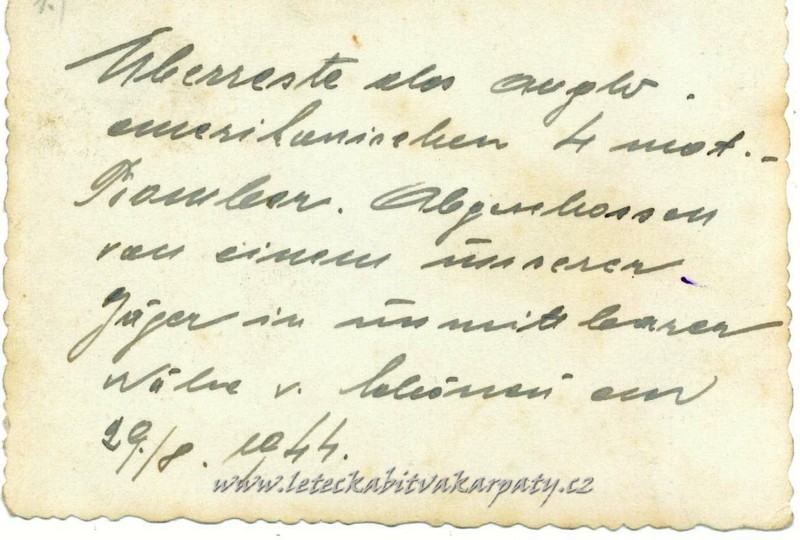 Überreste des anglo.
amerikanischen 4 mot.-
Bomber. Abgeschossen
von einem unserer
Jäger in unmittelbarer
Nähe v. am
29./8. 1944.
www.leteckabitvakarpaty.cz